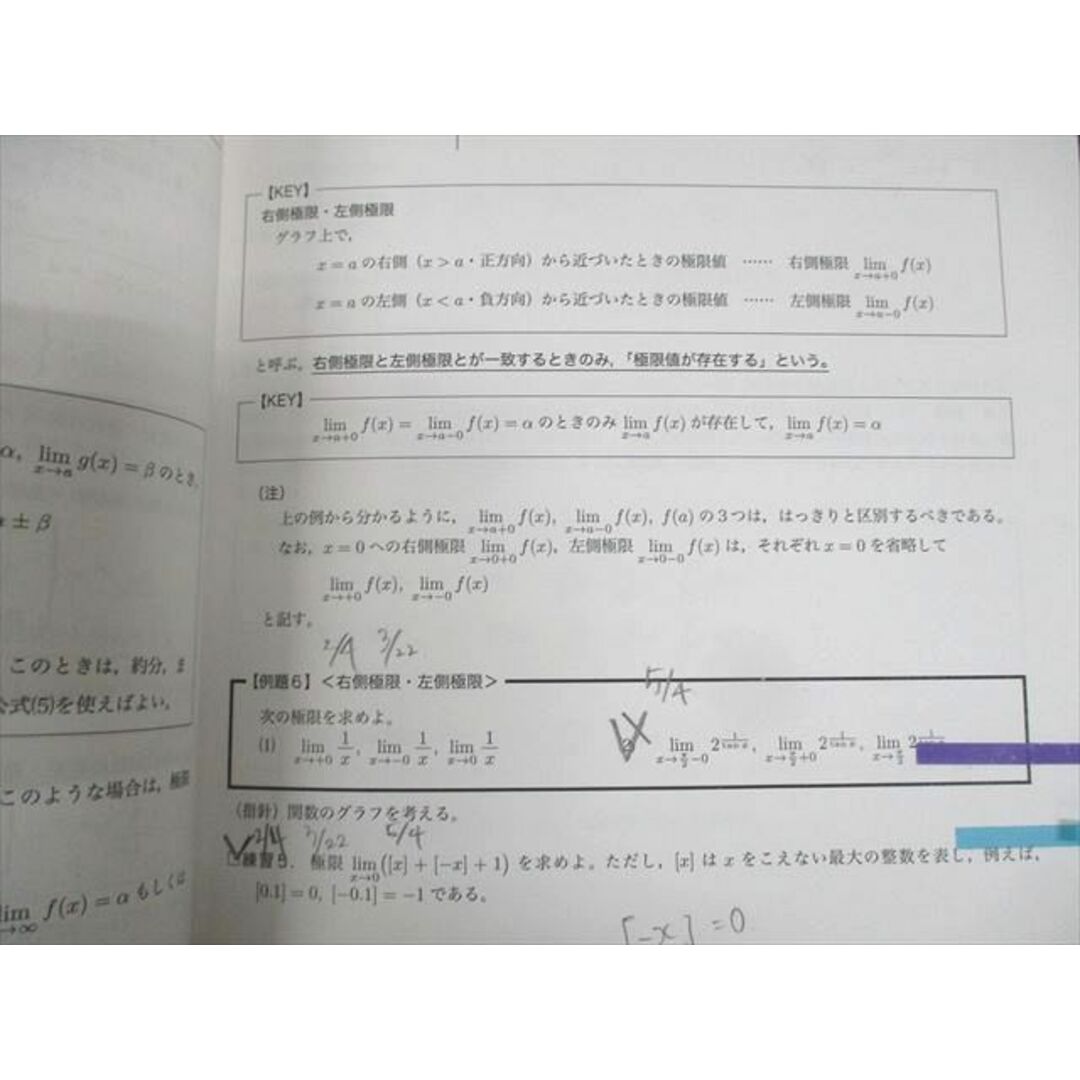 α, lim_{x→a} g(x) = β のとき,
α ± β
このときは, 約分, ま
公式(5)を使えばよい,
このような場合は, 極限
lim_{→∞} f(x) = α もしくは
【KEY】
右側極限・左側極限
グラフ上で,
x = a の右側（x > a・正方向）から近づいたときの極限値 …… 右側極限 lim_{x→a+0} f(x)
x = a の左側（x < a・負方向）から近づいたときの極限値 …… 左側極限 lim_{x→a−0} f(x)
と呼ぶ。右側極限と左側極限とが一致するときのみ,「極限値が存在する」という。
【KEY】
lim_{x→a+0} f(x) = lim_{x→a−0} f(x) = α のときのみ lim_{x→a} f(x) が存在して, lim_{x→a} f(x) = α
（注）
上の例から分かるように, lim_{x→a+0} f(x), lim_{x→a−0} f(x), f(a) の３つは, はっきりと区別するべきである。
なお, x = 0 への右側極限 lim_{x→0+0} f(x), 左側極限 lim_{x→0−0} f(x) は, それぞれ x = 0 を省略して
lim_{x→+0} f(x), lim_{x→−0} f(x)
と記す。
2/4 3/22
【例題６】＜右側極限・左側極限＞
5/4
次の極限を求めよ。
(1) lim_{x→+0} 1/x, lim_{x→−0} 1/x, lim_{x→0} 1/x
lim_{x→π/2−0} 2^{1/tan x}, lim_{x→π/2+0} 2^{1/tan x}, lim_{x→π/2} 2
（指針）関数のグラフを考える。
2/4 3/22 5/4
練習 極限 lim_{x→0} ([x] + [−x] + 1) を求めよ。ただし, [x] は x をこえない最大の整数を表し, 例えば,
[0.1] = 0, [−0.1] = −1 である。
[−x] = 0